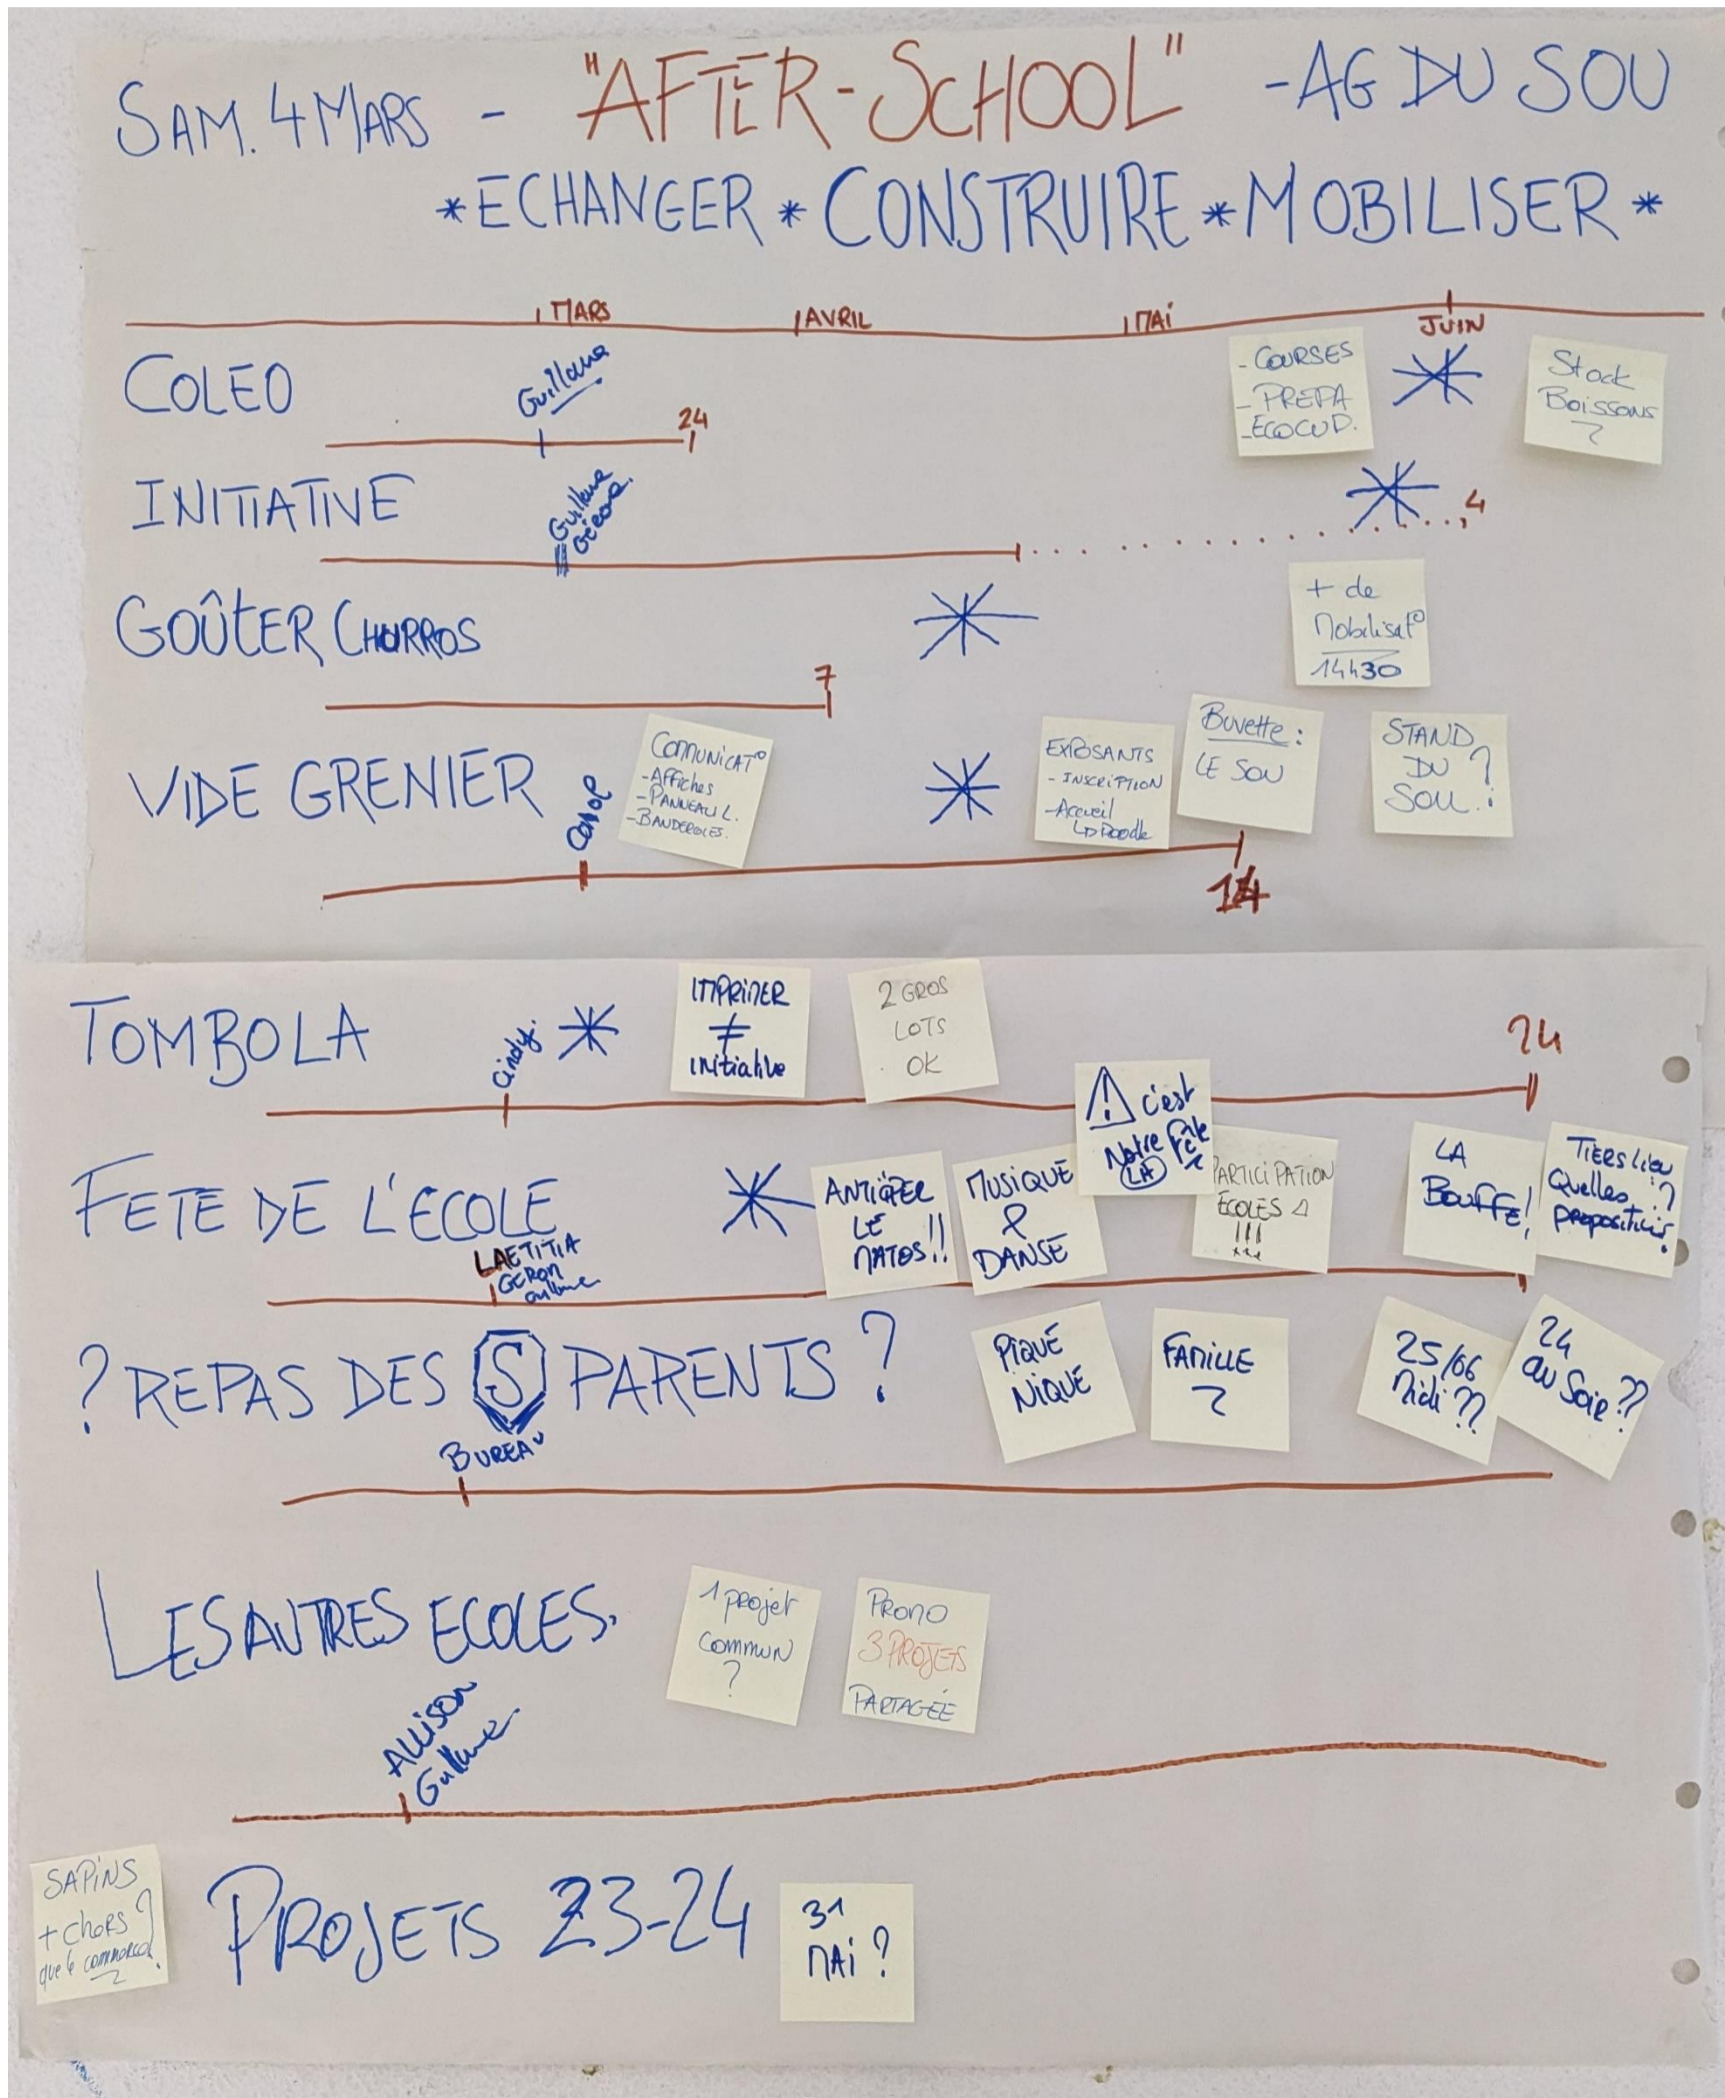 SAM. 4 MARS - "AFTER-SCHOOL" - AG DU SOU
* ECHANGER * CONSTRUIRE * MOBILISER *
MARS AVRIL MAI JUIN
COLEO
Guillaume
24
- COURSES
- PREPA
- ECOCUP.
Stock
Boissons
?
INITIATIVE
Guillaume
4
GOÛTER CHURROS
7
+ de
Mobilisat°
14h30
VIDE GRENIER
COMMUNICAT°
- Affiches
- PANNEAU L.
- BANDEROLES.
EXPOSANTS
- INSCRIPTION
- Accueil
↳ Doodle
Buvette :
LE SOU
STAND
DU ?
SOU
14
TOMBOLA
Cindy.
IMPRIMER
≠
initiative
2 GROS
LOTS
OK
24
FETE DE L'ECOLE
LAETITIA
GEROM
Guillaume
ANTICIPER
LE
MATOS!!
MUSIQUE
&
DANSE
⚠ c'est
Notre fête
LA
PARTICIPATION
ECOLES
!!!
LA
BOUFFE!
TIERS LIEU
Quelles ?
propositions
? REPAS DES S PARENTS ?
BUREAU
PIQUE
NIQUE
FAMILLE
?
25/06
Midi ??
24
au Soir ??
LES AUTRES ECOLES.
1 projet
commun
?
PROMO
3 PROJETS
PARTAGÉE
ALLISON
Guillaume
SAPINS
+ CHORS ?
que le commerce
?
PROJETS 23-24
31
MAI ?